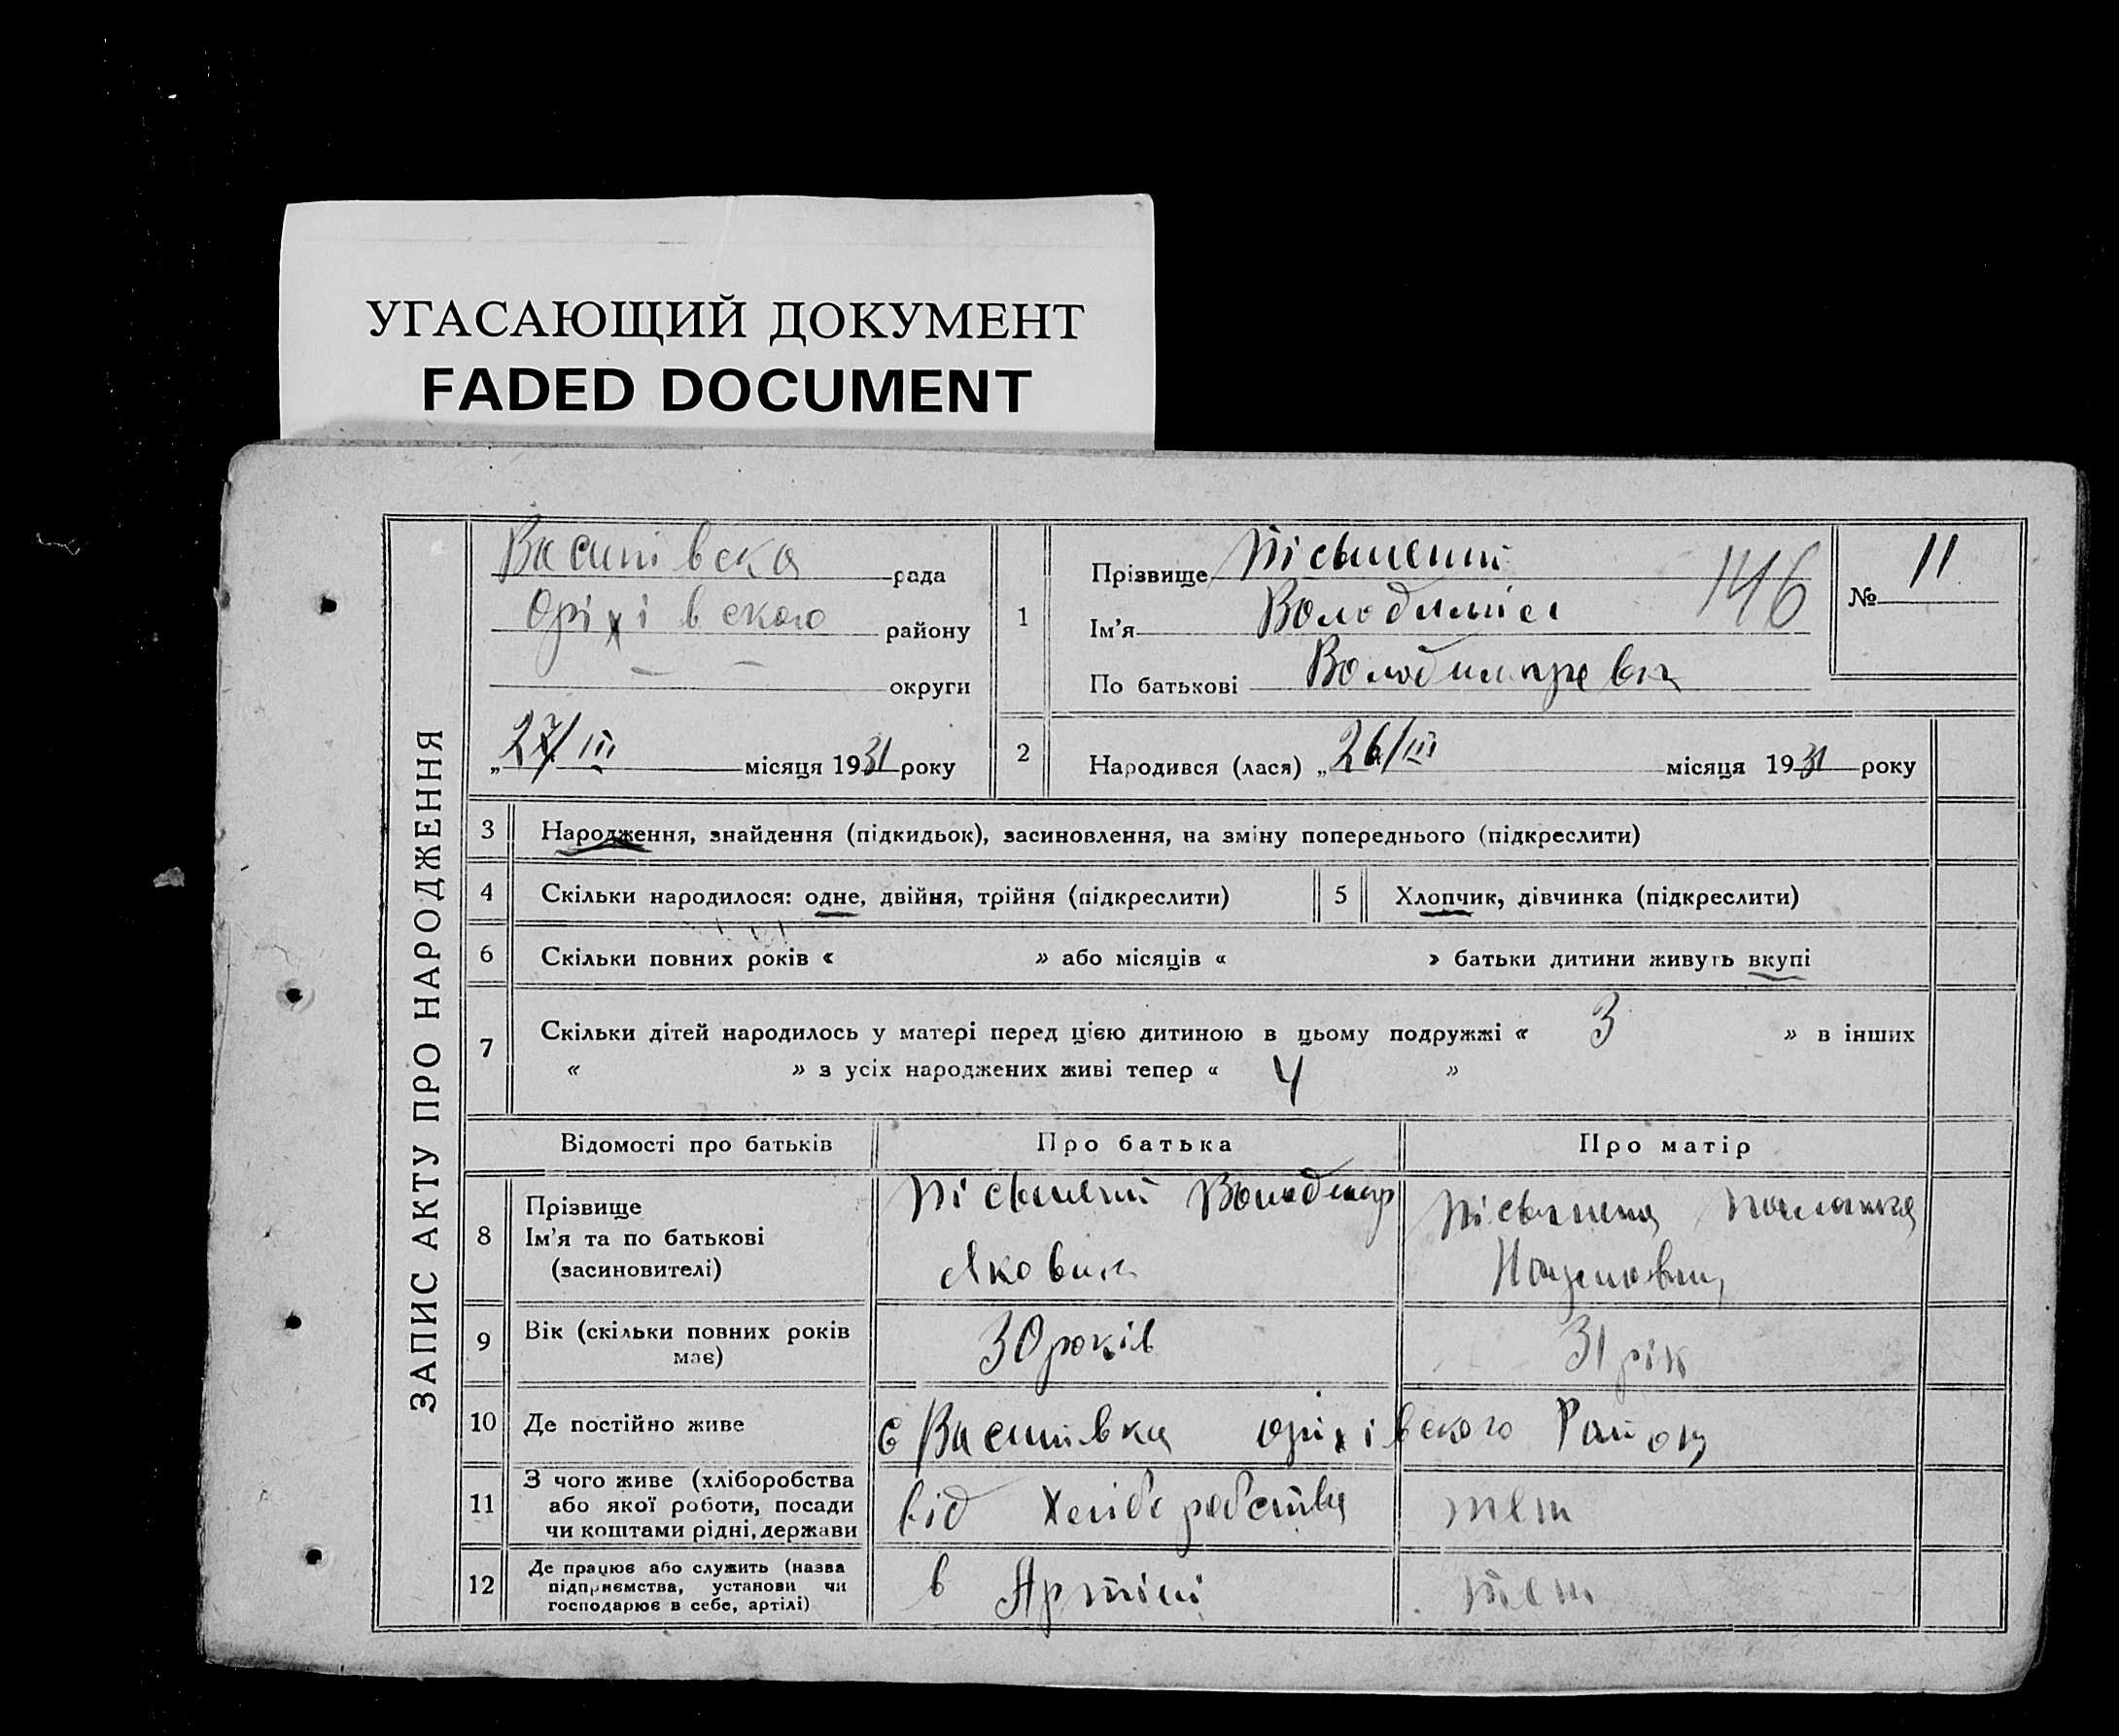 УГАСАЮЩИЙ ДОКУМЕНТ
FADED DOCUMENT
ЗАПИС АКТУ ПРО НАРОДЖЕННЯ
Василівска рада
Оріхівского району
округи
„27/III місяця 1931 року
1
Прізвище Пісьмений
Ім'я
По батькові
146
№ 11
2
Народився (лася) „26/III місяця 1931 року
3 Народження, знайдення (підкидьок), засиновлення, на зміну попереднього (підкреслити)
4 Скільки народилося: одне, двійня, трійня (підкреслити)
5 Хлопчик, дівчинка (підкреслити)
6 Скільки повних років « » або місяців « » батьки дитини живуть вкупі
7 Скільки дітей народилось у матері перед цією дитиною в цьому подружжі « 3 » в інших
« » з усіх народжених живі тепер « 4 »
Відомості про батьків Про батька Про матір
8
Прізвище
Ім'я та по батькові
(засновителі)
Пісьмений Володимир
Якович
Пісьмена
9
Вік (скільки повних років
має)
30 років
31 рік
10 Де постійно живе
с Василівка Оріхівского Району
11
З чого живе (хліборобства
або якої роботи, посади
чи коштами рідні, держави
від Хліборобства
теж
12
Де працює або служить (назва
підприємства, установи чи
господарює в себе, артілі)
в Артілі
теж